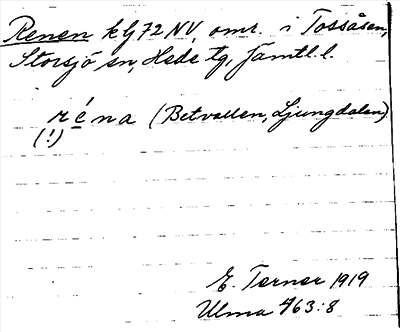 Renen kG72NV, omr. i Tossåsen,
Storsjö sn, Hede tg, Jämtl. l.
réna (Betvallen, Ljungdalen)
(!)
E. Terner 1919
Ulma 463:8